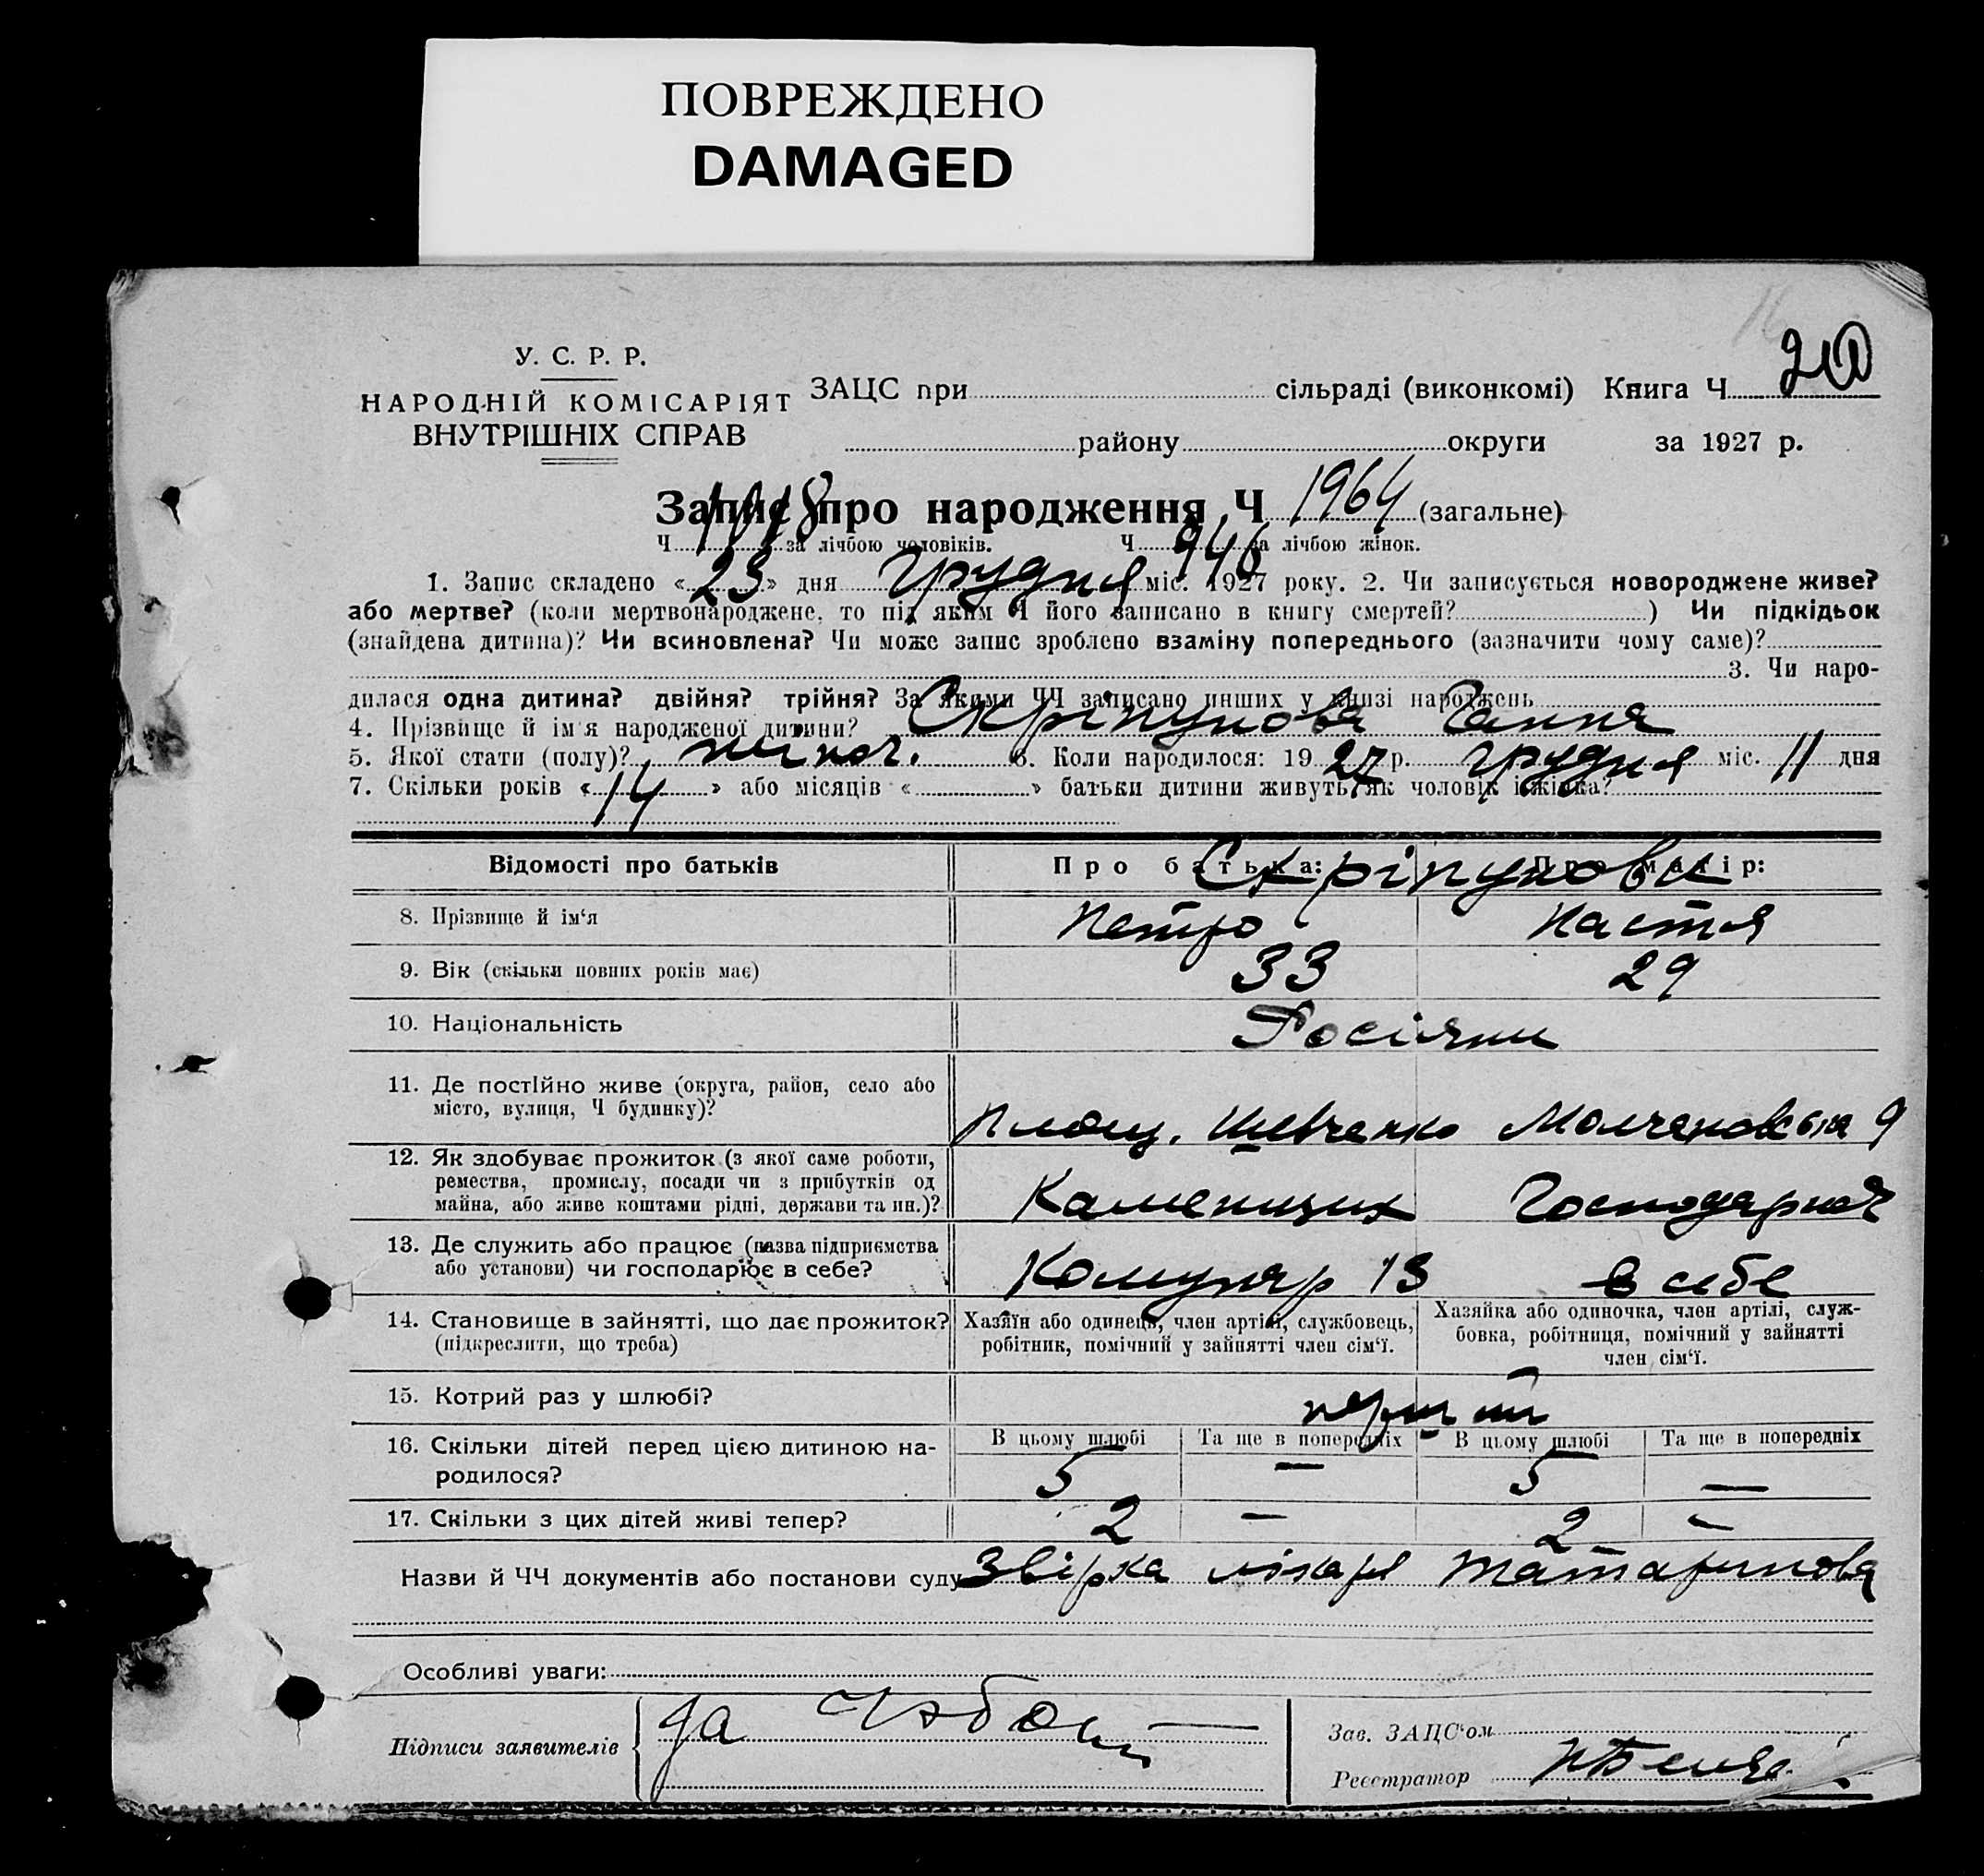 ПОВРЕЖДЕНО
DAMAGED
У. С. Р. Р.
НАРОДНІЙ КОМІСАРІЯТ
ВНУТРІШНІХ СПРАВ
ЗАЦС при сільраді (виконкомі) Книга Ч
району округи за 1927 р.
Запис про народження Ч 1964 (загальне)
Ч 1018 за лічбою чоловіків. Ч 946 за лічбою жінок.
1. Запис складено «23» дня Грудня міс. 1927 року. 2. Чи записується новороджене живе?
або мертве? (коли мертвонароджене, то під яким Ч його записано в книгу смертей? ) Чи підкідьок
(знайдена дитина)? Чи всиновлена? Чи може запис зроблено взаміну попереднього (зазначити чому саме)?
3. Чи наро-
дилася одна дитина? двійня? трійня? За якими ЧЧ записано инших у книзі народжень
4. Прізвище й ім'я народженої дитини? Скріпунова Ганна
5. Якої стати (полу)? жіноч. 6. Коли народилося: 1927 р. грудня міс. 11 дня
7. Скільки років «14» або місяців « » батьки дитини живуть, як чоловік і жінка?
Відомості про батьків Про батька: Про матір:
Скріпунови
8. Прізвище й ім'я Петро Настя
9. Вік (скільки повних років має) 33 29
10. Національність Росіяни
11. Де постійно живе (округа, район, село або
місто, вулиця, Ч будинку)?
Площ. Шевченко Молчановська 9
12. Як здобуває прожиток (з якої саме роботи,
ремества, промислу, посади чи з прибутків од
майна, або живе коштами рідні, держави та ин.)?
Каменщик Господарка
13. Де служить або працює (назва підприємства
або установи) чи господарює в себе?
Комунар 13 в себе
14. Становище в зайнятті, що дає прожиток?
(підкреслити, що треба)
Хазяїн або одинець, член артілі, службовець,
робітник, помічний у зайнятті член сім'ї.
Хазяйка або одиночка, член артілі, служ-
бовка, робітниця, помічний у зайнятті
член сім'ї.
15. Котрий раз у шлюбі? перший
16. Скільки дітей перед цією дитиною на-
родилося?
В цьому шлюбі Та ще в попередніх В цьому шлюбі Та ще в попередніх
5 — 5 —
17. Скільки з цих дітей живі тепер? 2 — 2 —
Назви й ЧЧ документів або постанови суду Звірка лікаря Татаринова
Особливі уваги:
Підписи заявителів
Зав. ЗАЦС'ом
Реєстратор